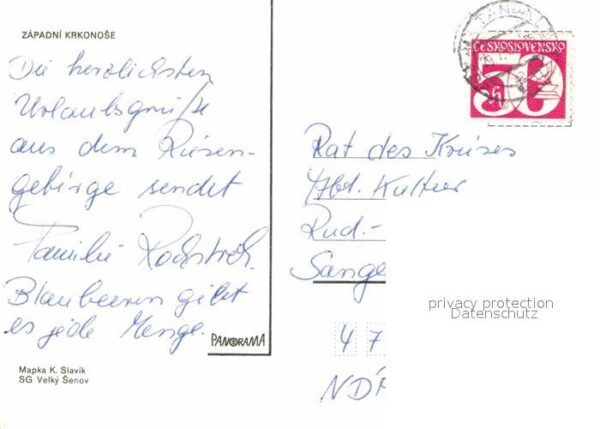 ZÁPADNÍ KRKONOŠE
Die herzlichsten
Urlaubsgrüße
aus dem Riesen-
gebirge sendet
Familie
Blaubeeren gibt
es jede Menge.
PANORAMA
Mapka K. Slavik
SG Velký Šenov
TANVALD
ČESKOSLOVENSKO
50 h
Rat des Kreises
Abt. Kultur
Rud.-
Sange
privacy protection
Datenschutz
4 7
ND